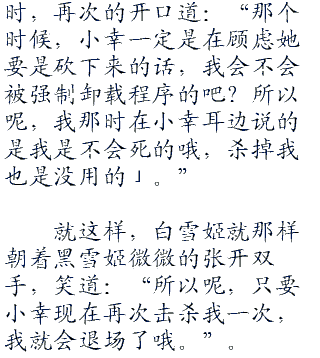 时，再次的开口道：“那个
时候，小幸一定是在顾虑她
要是砍下来的话，我会不会
被强制卸载程序的吧？所以
呢，我那时在小幸耳边说的
是我是不会死的哦，杀掉我
也是没用的」。”
就这样，白雪姬就那样
朝着黑雪姬微微的张开双
手，笑道：“所以呢，只要
小幸现在再次击杀我一次，
我就会退场了哦。”。